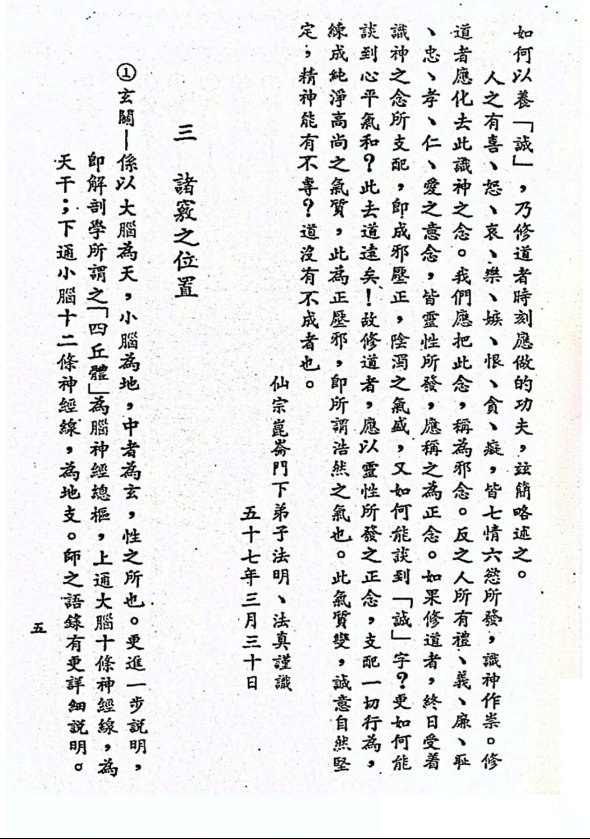 如何以養「誠」，乃修道者時刻應做的功夫，玆簡略述之。
人之有喜、怒、哀、樂、嫉、恨、貪、癡，皆七情六慾所發，識神作祟。修
道者應化去此識神之念。我們應把此念，稱為邪念。反之人所有禮、義、廉、恥
、忠、孝、仁、愛之意念，皆靈性所發，應稱之為正念。如果修道者，終日受着
識神之念所支配，即成邪壓正，陰濁之氣盛，又如何能談到「誠」字？更如何能
談到心平氣和？此去道遠矣！故修道者，應以靈性所發之正念，支配一切行為，
練成純淨高尚之氣質，此為正壓邪，即所謂浩然之氣也。此氣質變，誠意自然堅
定，精神能有不專？道沒有不成者也。
仙宗崑崙門下弟子法明、法真謹識
五十七年三月三十日
三　諸竅之位置
①玄關—係以大腦為天，小腦為地，中者為玄，性之所也。更進一步説明，
即解剖學所謂之「四丘體」為腦神經總樞，上通大腦十條神經線，為
天干；下通小腦十二條神經線，為地支。師之語錄有更詳細説明。
五